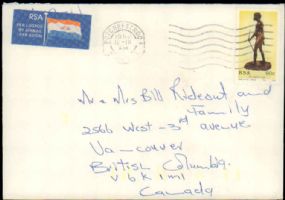 RSA
PER LUGPOS
BY AIRMAIL
PAR AVION
RSA
Mr & Mrs Bill Rideout and
Family
2566 West - 3rd avenue
Va-couver
British Columbia.
V6K 1M1
Canada